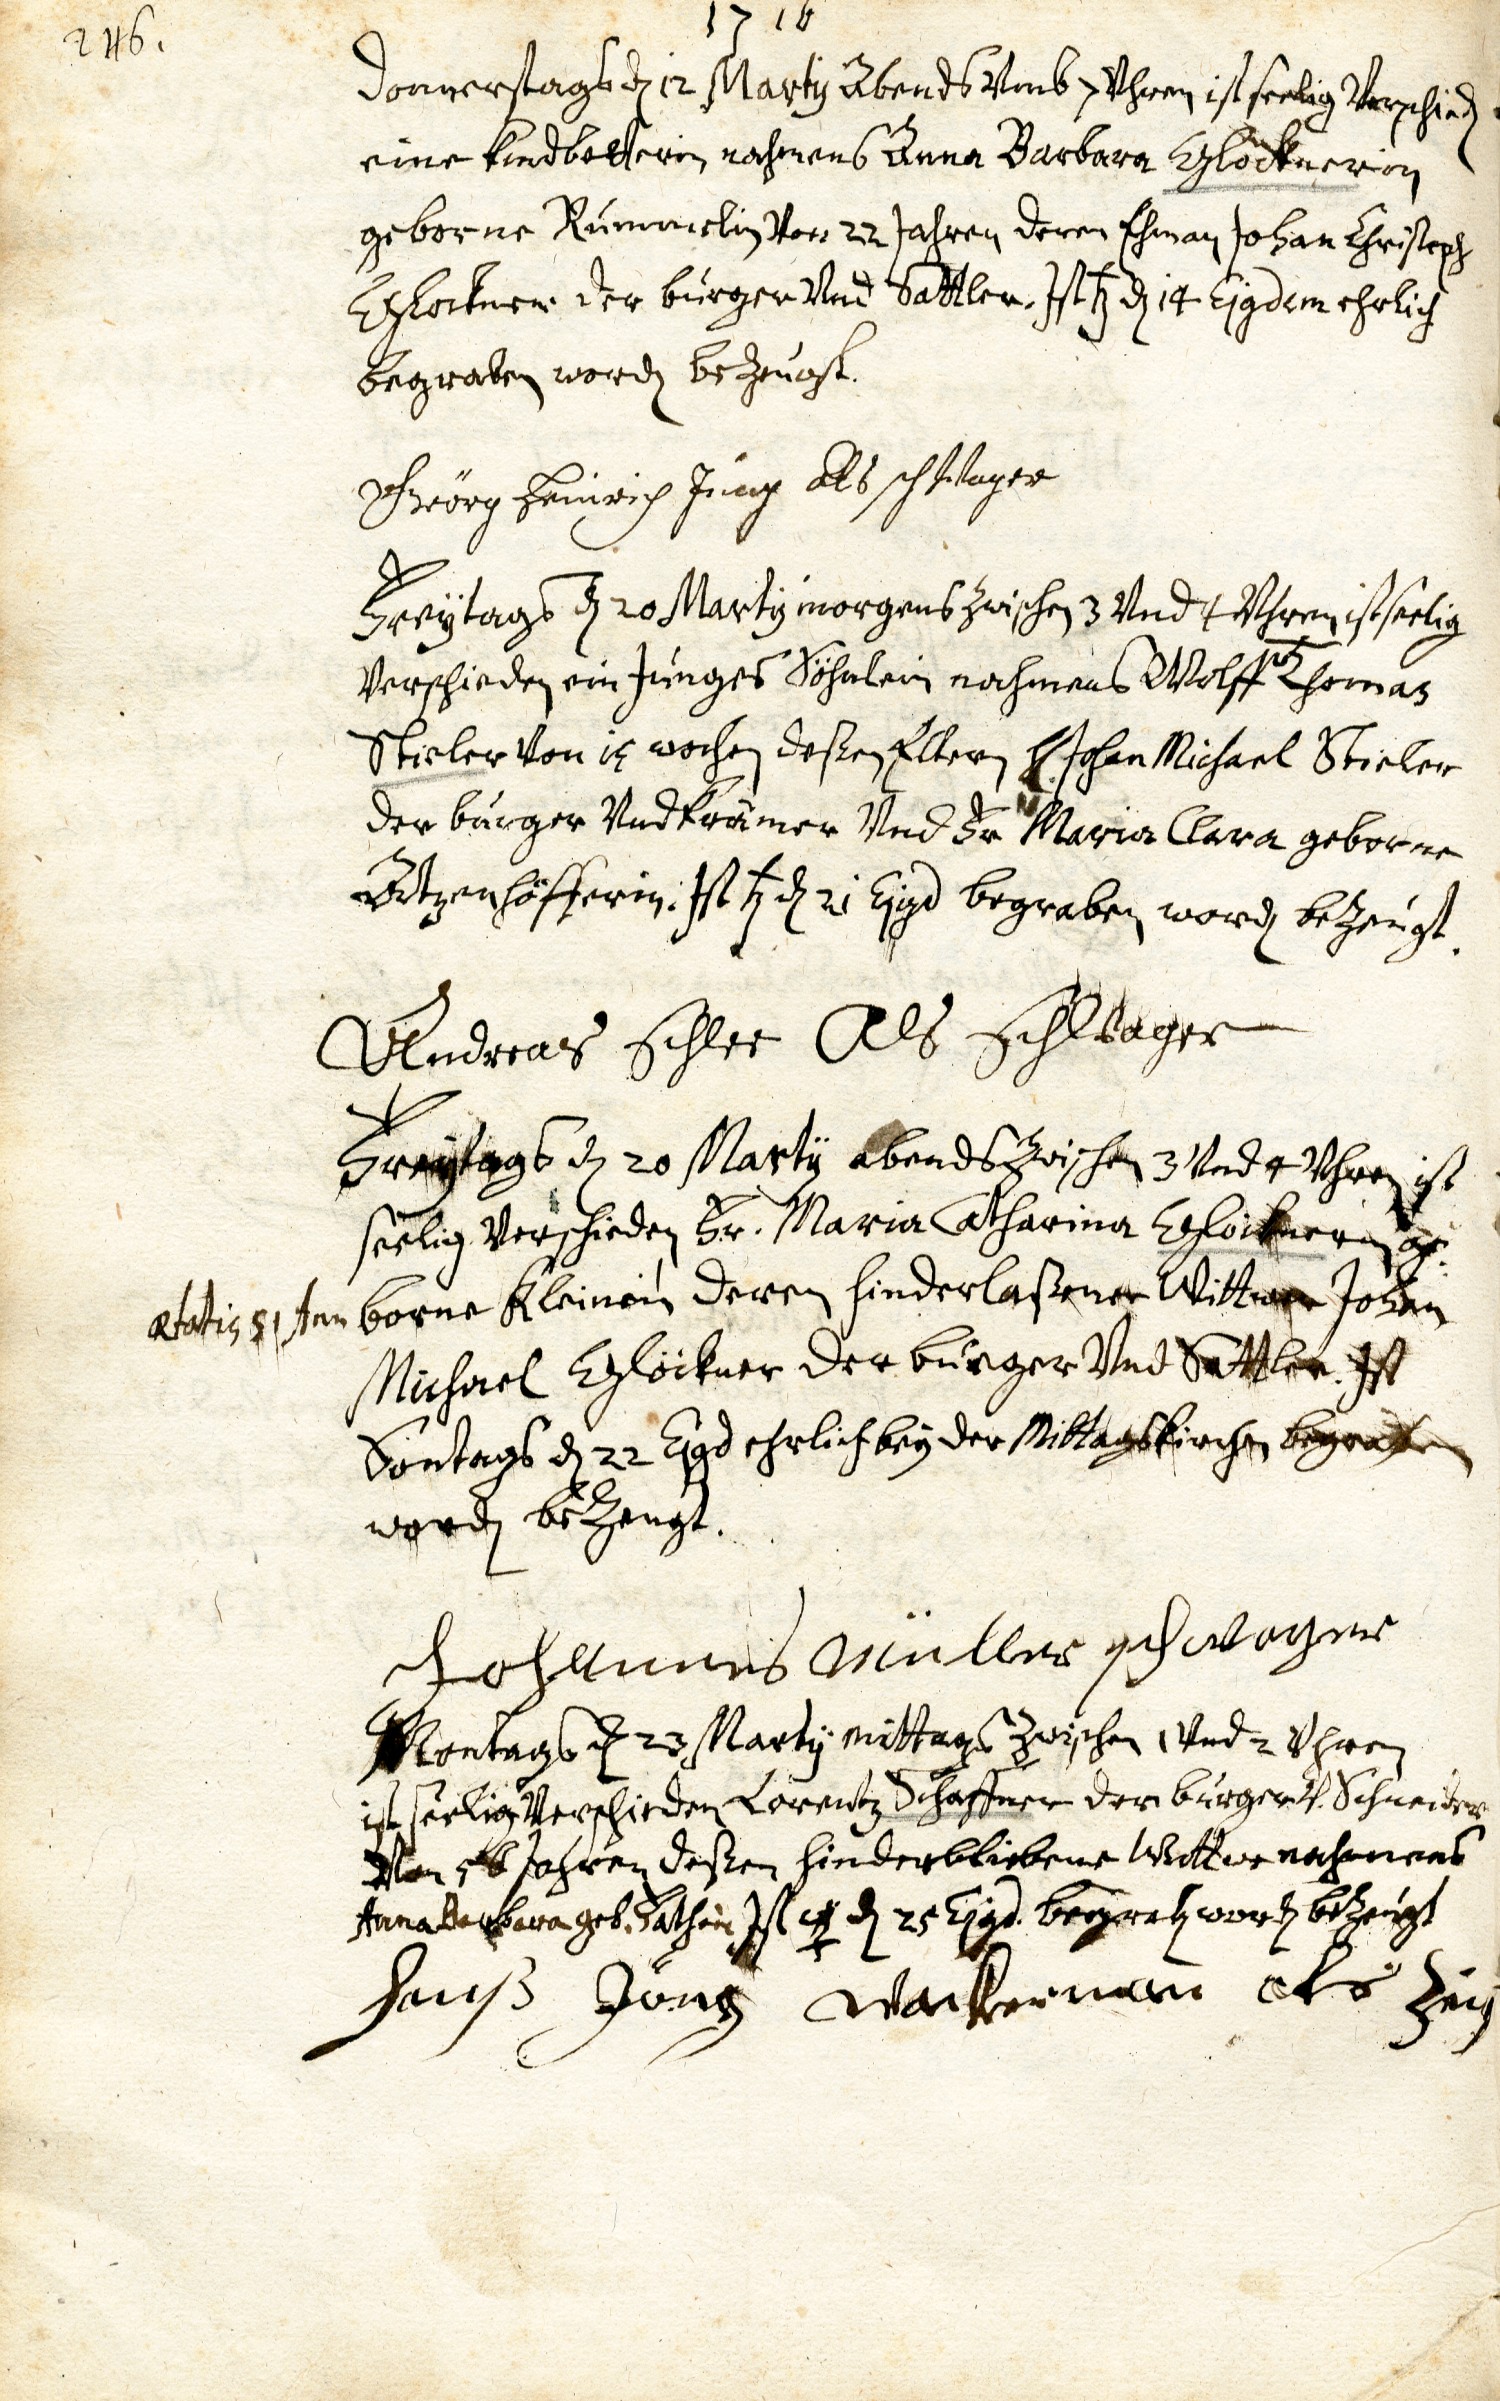 246.
1716
Donnerstags dn 12 Martÿ Abends Umb 7 Uhren ist seelig Verschiedn
eine Kindbetterin nahmens Anna Barbara Glöcknerin
geborne Rümmelin Von 22 Jahren deren Ehman Johan Christoph
Glöckner der burger Und Sattler. Ist dn 14 Ejusdem ehrlich
begraben wordn bezeugt.
Geörg Heinrich Jung Als schwager
Freÿtags dn 20 Martÿ morgens zwischen 3 Und 4 Uhren ist seelig
Verschieden ein Junges Söhnlein nahmens Wolff Thomas
Stieler Von 15 wochen deßen Eltern H Johan Michael Stieler
der burger Und Krämer Und Fr Maria Clara geborne
Atzenhöfferin. Ist dn 21 Ejusd begraben wordn bezeugt.
Andreas Schlee Als Schwager
Freÿtags dn 20 Martÿ abends zwischen 3 Und 4 Uhren ist
seelig Verschieden Fr. Maria Catharina Glöcknerin ge:
ætatis 51 Ann borne Kleinin deren hinderlaßener Wittwer Johan
Michael Glöckner der burger Und Sattler. Ist
Sontags dn 22 Ejusd ehrlich beÿ der Mittagskirchen begraben
wordn bezeugt.
Johannes Müller schwager
Montags dn 23 Martÿ mittags zwischen 1 Und 2 Uhren
ist seelig Verschieden Lorentz Schaffner der burger U. Schneider
Von 56 Jahren deßen hinderbliebene Wittwe nahmens
Anna Barbara geb. Ist dn 25 Ejusd. begrabn wordn bezeugt
Hanß Jörg Wackerman als Zeug